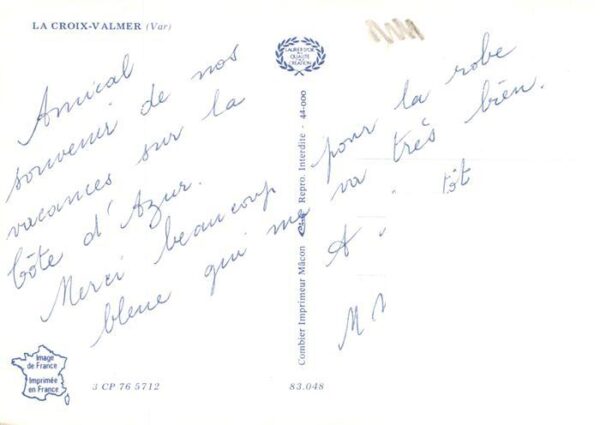 LA CROIX-VALMER (Var)
LAURIER D'OR
DE
QUALITÉ
CRÉATION
Amical
souvenir de nos
vacances sur la
Côte d'Azur.
Merci beaucoup pour la robe
bleue qui me va très bien.
A tôt
Combier Imprimeur Mâcon Repro. Interdite - 44-000
Image
de France
Imprimée
en France
3 CP 76 5712
83.048